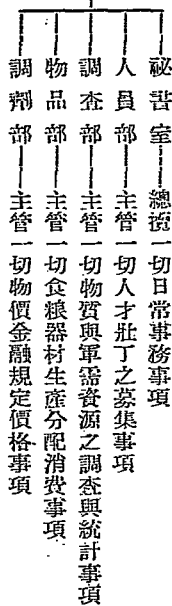 祕書室——總攬一切日常事務事項
人員部——主管一切人才壯丁之募集事項
調查部——主管一切物質與軍需資源之調查與統計事項
物品部——主管一切食粮器材生產分配消費事項
調劑部——主管一切物價金融規定價格事項